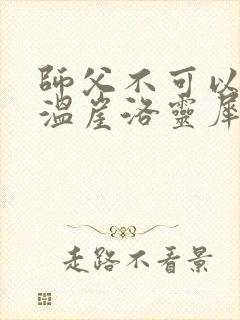 師父不可以
溫崖洛靈犀
走路不看景